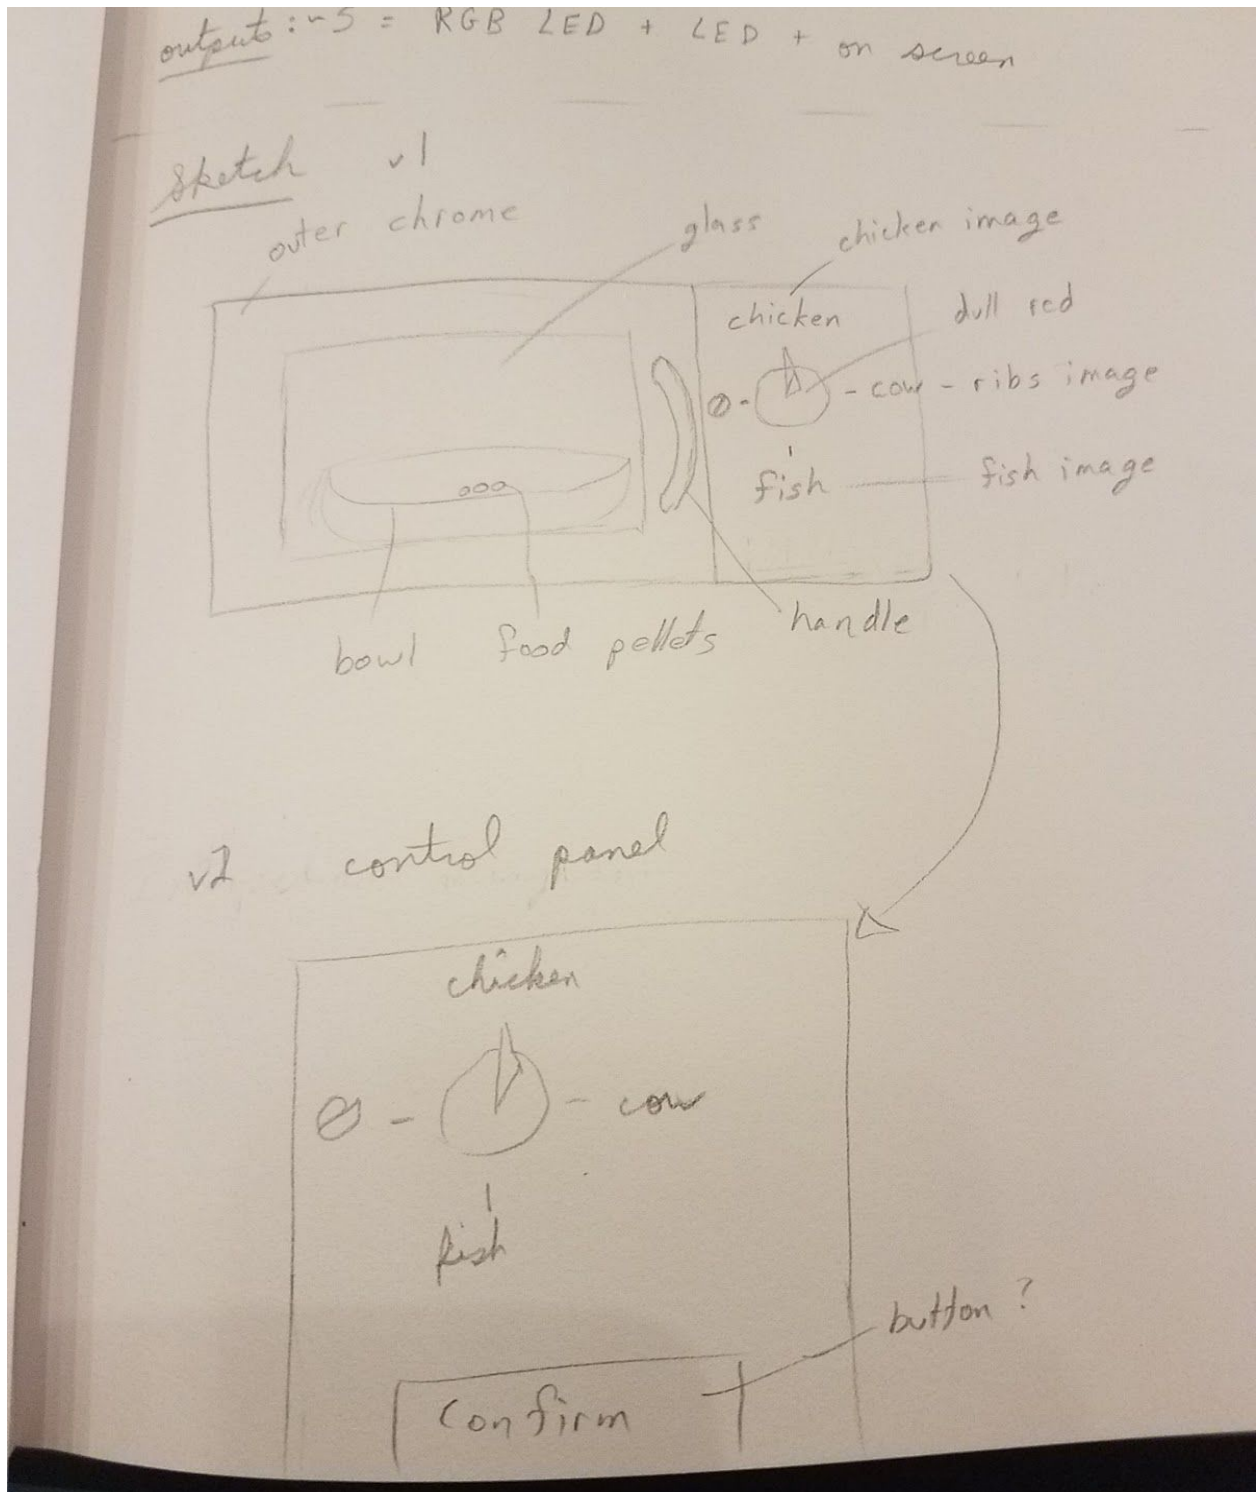 outputs: ~5 = RGB LED + LED + on screen
Sketch v1
outer chrome
glass
chicken image
chicken
dull red
Ø - - cow - ribs image
fish
fish image
handle
bowl
food pellets
v2 control panel
chicken
Ø - - cow
fish
button?
Confirm